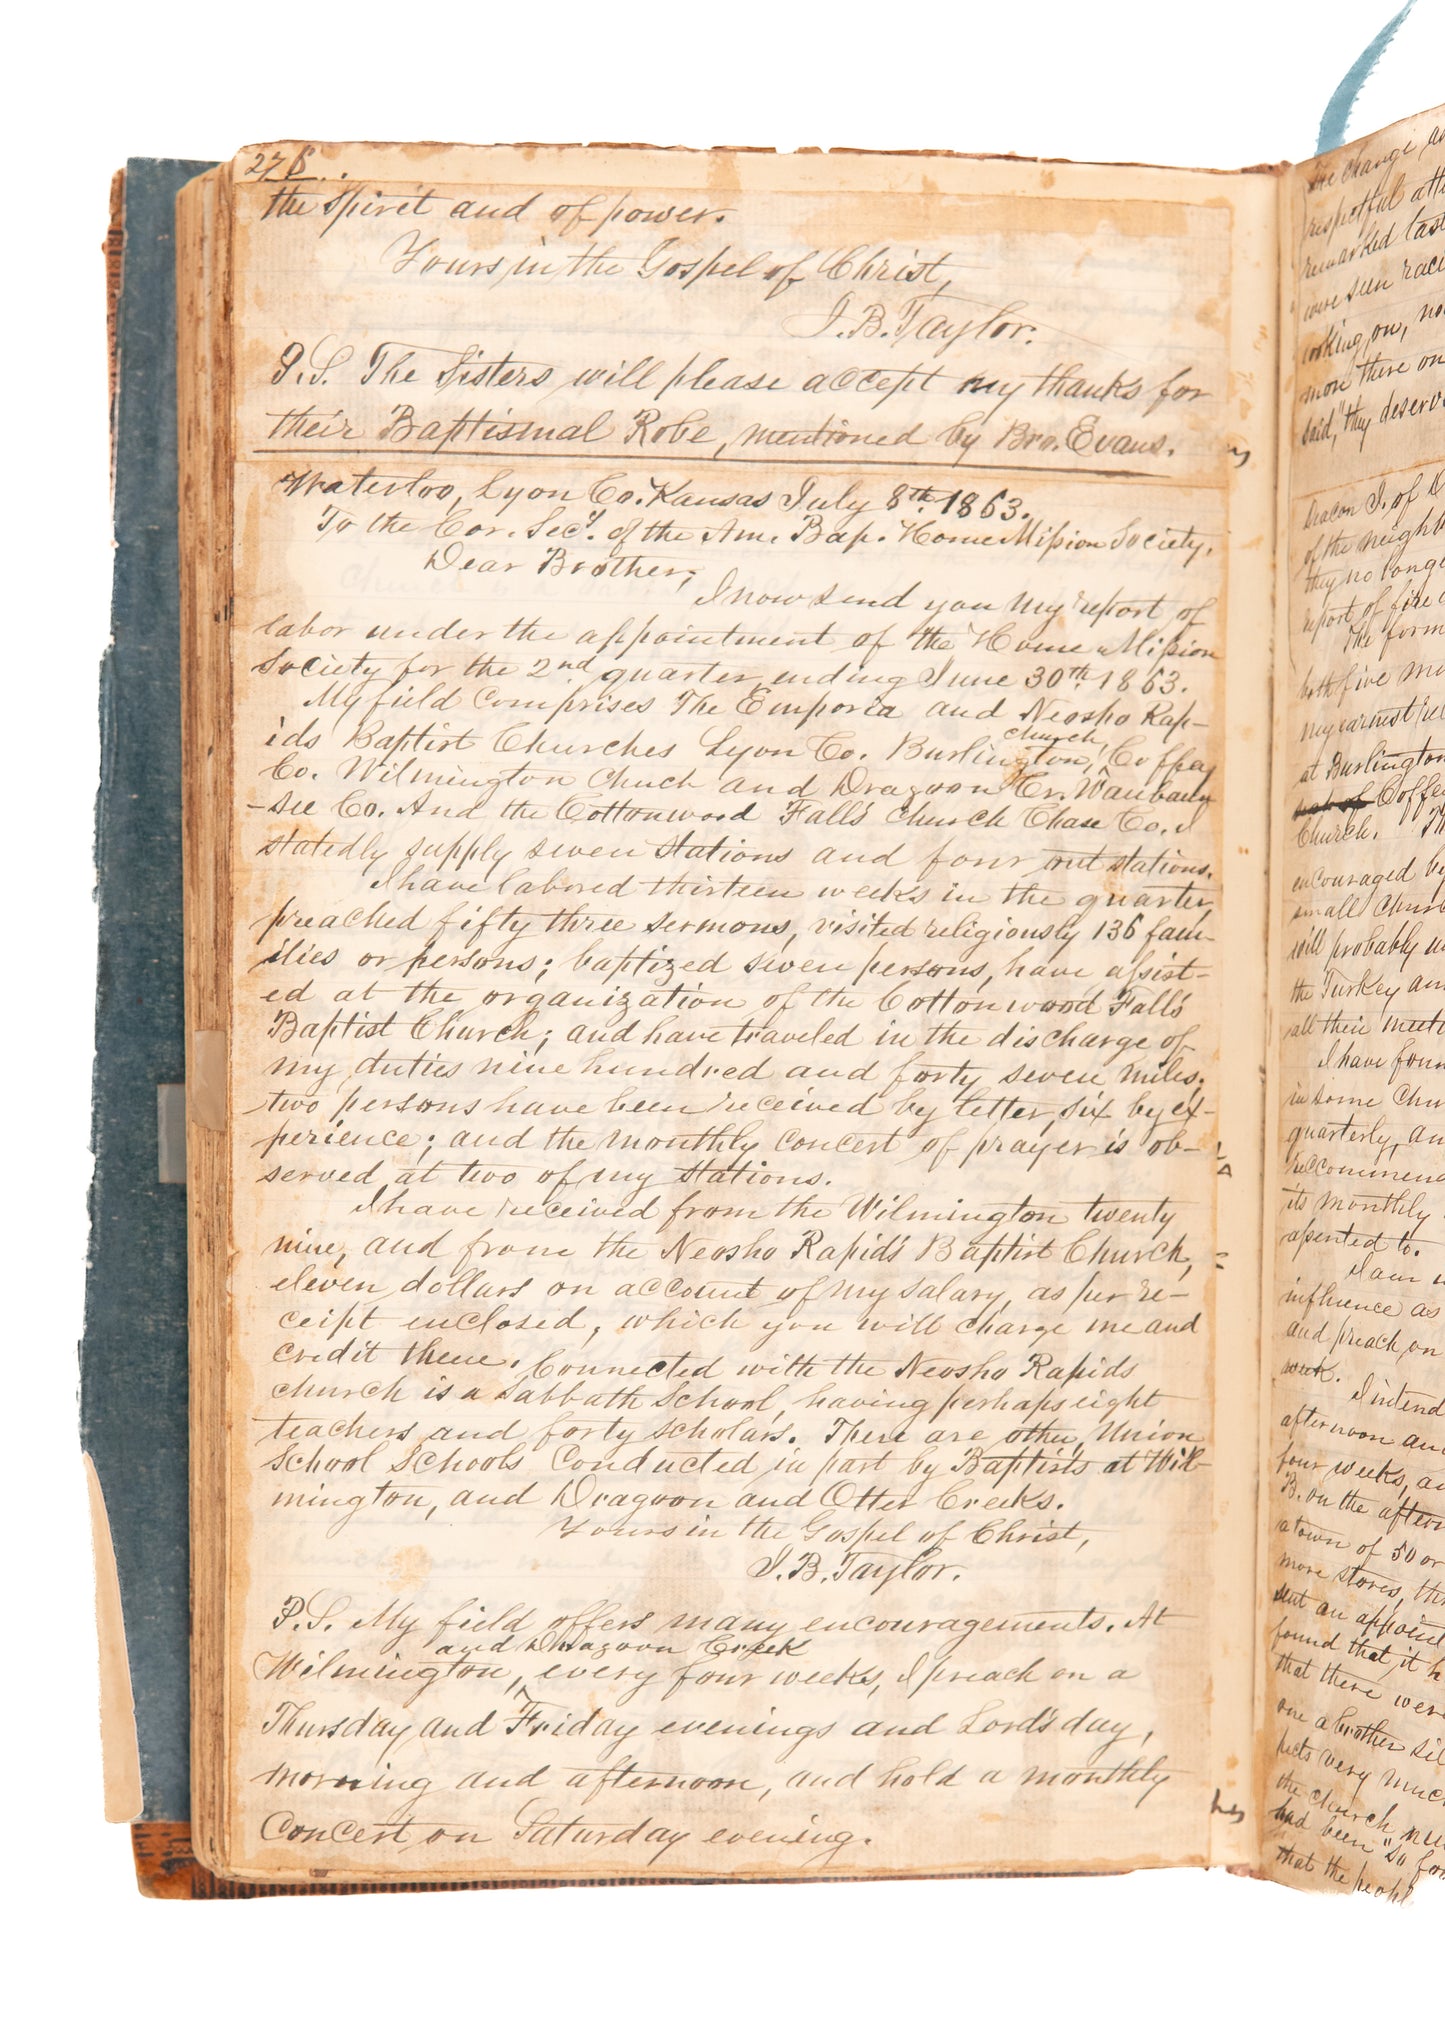 276.
the Spirit and of power.
Yours in the Gospel of Christ,
J. B. Taylor.
P.S. The Sisters will please accept my thanks for
their Baptismal Robe, mentioned by Bro. Evans.
Waterloo, Lyon Co. Kansas July 8th. 1863.
To the Cor. Secy. of the Am. Bap. Home Mission Society.
Dear Brother;
I now send you my report of
labor under the appointment of the Home Mission
Society for the 2nd. quarter, ending June 30th. 1863.
My field comprises The Emporia and Neosho Rap-
church,
ids Baptist Churches Lyon Co. Burlington, ^ Coffey
Co. Wilmington Chuch and Dragoon Cr. Waubaun
-see Co. And the Cottonwood Fall's Church Chase Co. I
statedly supply seven stations and four out stations.
I have labored thirteen weeks in the quarter,
preached fifty three sermons, visited religiously 136 fam-
ilies or persons; baptized seven persons, have assist-
ed at the organization of the Cottonwood Fall's
Baptist Church; and have traveled in the discharge of
my duties nine hundred and forty seven miles.
two persons have been received by letter, six by ex-
perience; and the monthly concert of prayer is ob-
served at two of my stations.
I have received from the Wilmington twenty
nine, and from the Neosho Rapid's Baptist Church,
eleven dollars on account of my salary, as per re-
ceipt enclosed, which you will charge me and
credit them. Connected with the Neosho Rapids
church is a Sabbath School, having perhaps eight
teachers and forty scholars. There are other Union
School Schools conducted in part by Baptists at Wil-
mington, and Dragoon and Otter Creeks.
Yours in the Gospel of Christ,
J. B. Taylor.
P.S. My field offers many encouragements. At
and Dragoon Creek
Wilmington, ^ every four weeks, I preach on a
Thursday and Friday evenings and Lord's day,
morning and afternoon, and hold a monthly
Concert on Saturday evening.
the change
respectful
remarked last
were seen
looking on,
more there on
said, "they
Deacon J. of
of the
they no longer
report of fire
The form
both five
my earnest
at Burlington
Church.
encouraged by
small
will probably
the Turkey
all their
I have
in some
quarterly,
recommend
its monthly
assented to.
I am
influence as
and preach on
week.
I intend
afternoon
four weeks,
B. on the
a town of 50 or
more stores,
sent an
found that it
that there were
one a brother
pects very much
the church
had been "so
that the